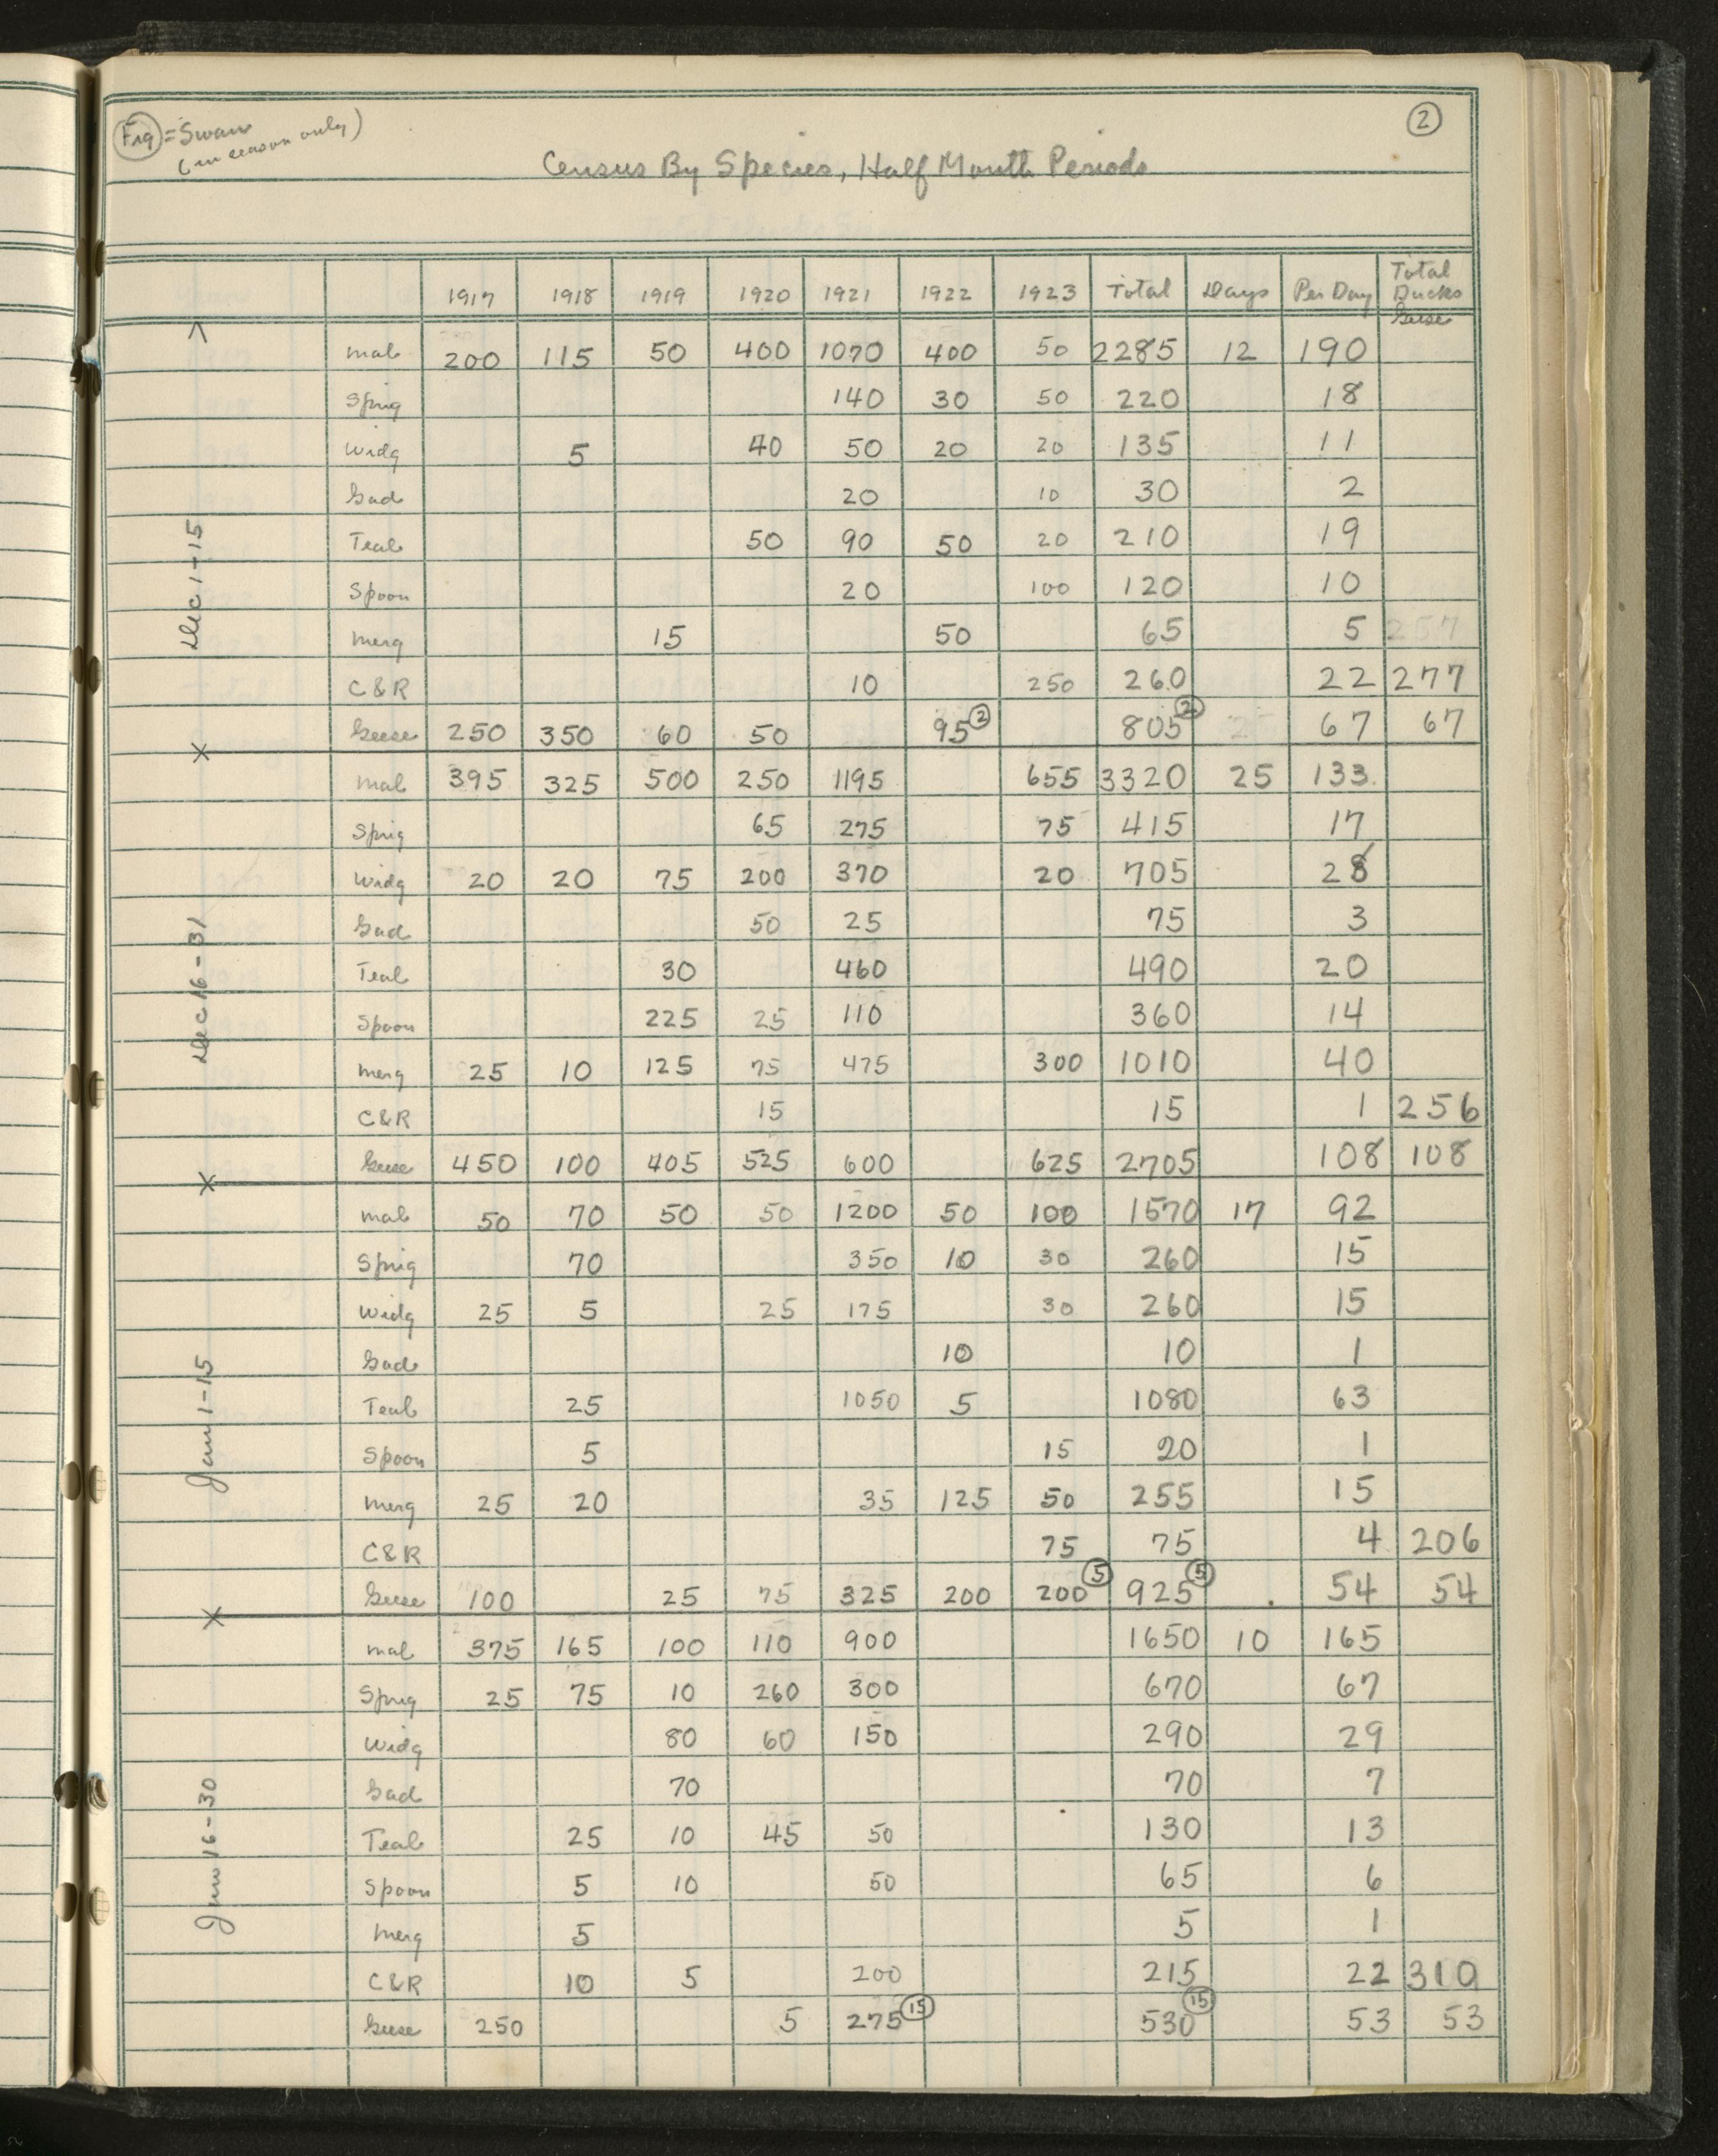 (Fig) = Swans
(in season only)
2
Census By Species, Half Month Periods
1917 1918 1919 1920 1921 1922 1923 Total Days Per Day Total Ducks Geese
Dec 1-15
Mal 200 115 50 400 1070 400 50 2285 12 190
Sprig 140 30 50 220 18
Widg 5 40 50 20 20 135 11
Gad 20 10 30 2
Teal 50 90 50 20 210 19
Spoon 20 100 120 10
Merg 15 50 65 5 257
C&R 10 250 260 22 277
Geese 250 350 60 50 95 (2) 805 (2) 67 67
Dec 16-31
Mal 395 325 500 250 1195 655 3320 25 133
Sprig 65 275 75 415 17
Widg 20 20 75 200 370 20 705 28
Gad 50 25 75 3
Teal 30 460 490 20
Spoon 225 25 110 360 14
Merg 25 10 125 75 475 300 1010 40
C&R 15 15 1 256
Geese 450 100 405 525 600 625 2705 108 108
Jan 1-15
Mal 50 70 50 50 1200 50 100 1570 17 92
Sprig 70 350 10 30 260 15
Widg 25 5 25 175 30 260 15
Gad 10 10 1
Teal 25 1050 5 1080 63
Spoon 5 15 20 1
Merg 25 20 35 125 50 255 15
C&R 75 75 4 206
Geese 100 25 75 325 200 200 (5) 925 (5) 54 54
Jan 16-30
Mal 375 165 100 110 900 1650 10 165
Sprig 25 75 10 260 300 670 67
Widg 80 60 150 290 29
Gad 70 70 7
Teal 25 10 45 50 130 13
Spoon 5 10 50 65 6
Merg 5 5 1
C&R 10 5 200 215 22 310
Geese 250 5 275 (15) 530 (15) 53 53